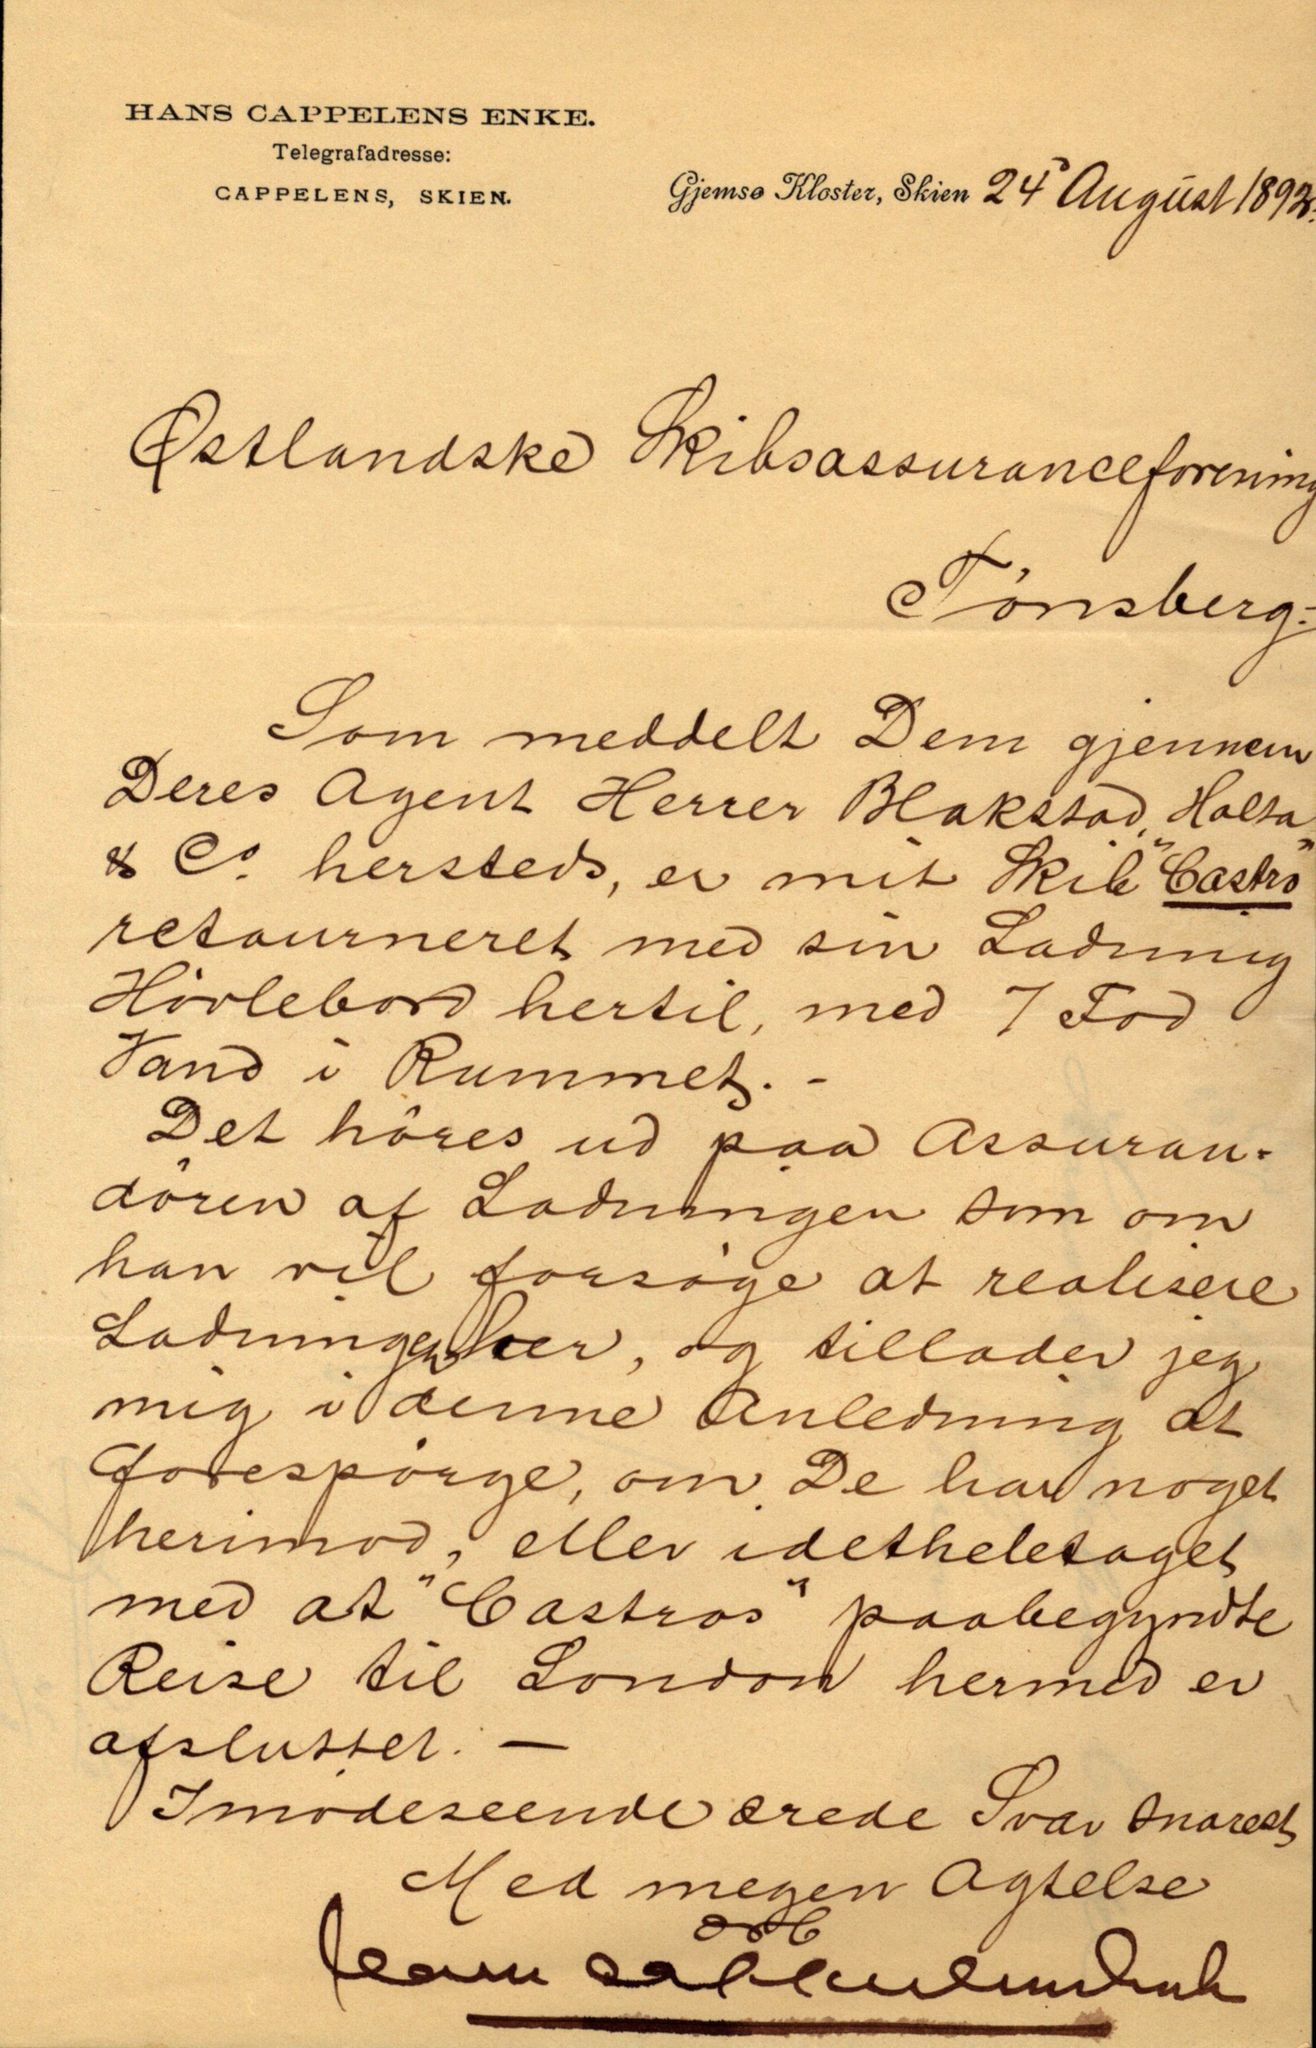 HANS CAPPELENS ENKE.
Telegrafadresse:
CAPPELENS, SKIEN.
Gjemsø Kloster, Skien 24 August 1892.
Østlandske Skibsassuranceforening
Tönsberg.
Som meddelt Dem gjennem
Deres Agent Herrer Blakstad, Holta
& Co. hersteds, er mit Skib "Castro"
retourneret med sin Ladning
Hövlebord hertil, med 7 Fod
Vand i Rummet. -
Det höres ud paa Assuran-
dören af Ladningen som om
han vil forsöge at realisere
Ladningen her, og tillader jeg
mig i denne Anledning at
forespörge, om De har noget
herimod, eller idetheletaget
med at "Castros" paabegyndte
Reise til London hermed er
afsluttet. —
Imödeseende ærede Svar snarest
Med megen Agtelse
Hans Cappelens Enke